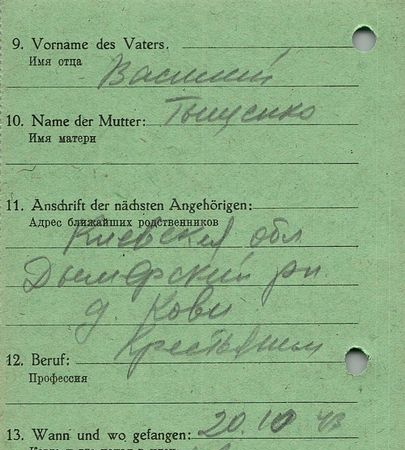 9. Vorname des Vaters.
Имя отца
Василий
10. Name der Mutter: Тыщенко
Имя матери
11. Anschrift der nächsten Angehörigen:
Адрес ближайших родственников
Киевская обл
Дымерский рн.
д.
12. Beruf:
Профессия
13. Wann und wo gefangen: 20.10 43